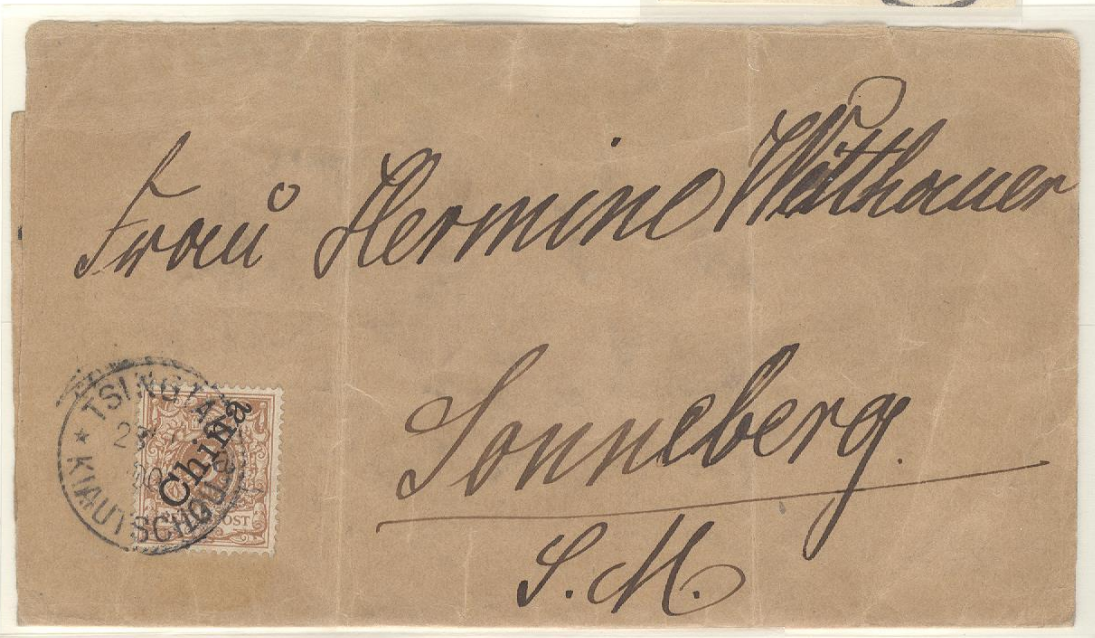 Frau Hermine Witthauer
Sonneberg.
S. M.
TSINGTAU
KIAUTSCHOU
China